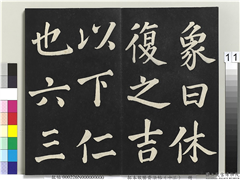 象曰休
復之吉
以下仁
也六三
11